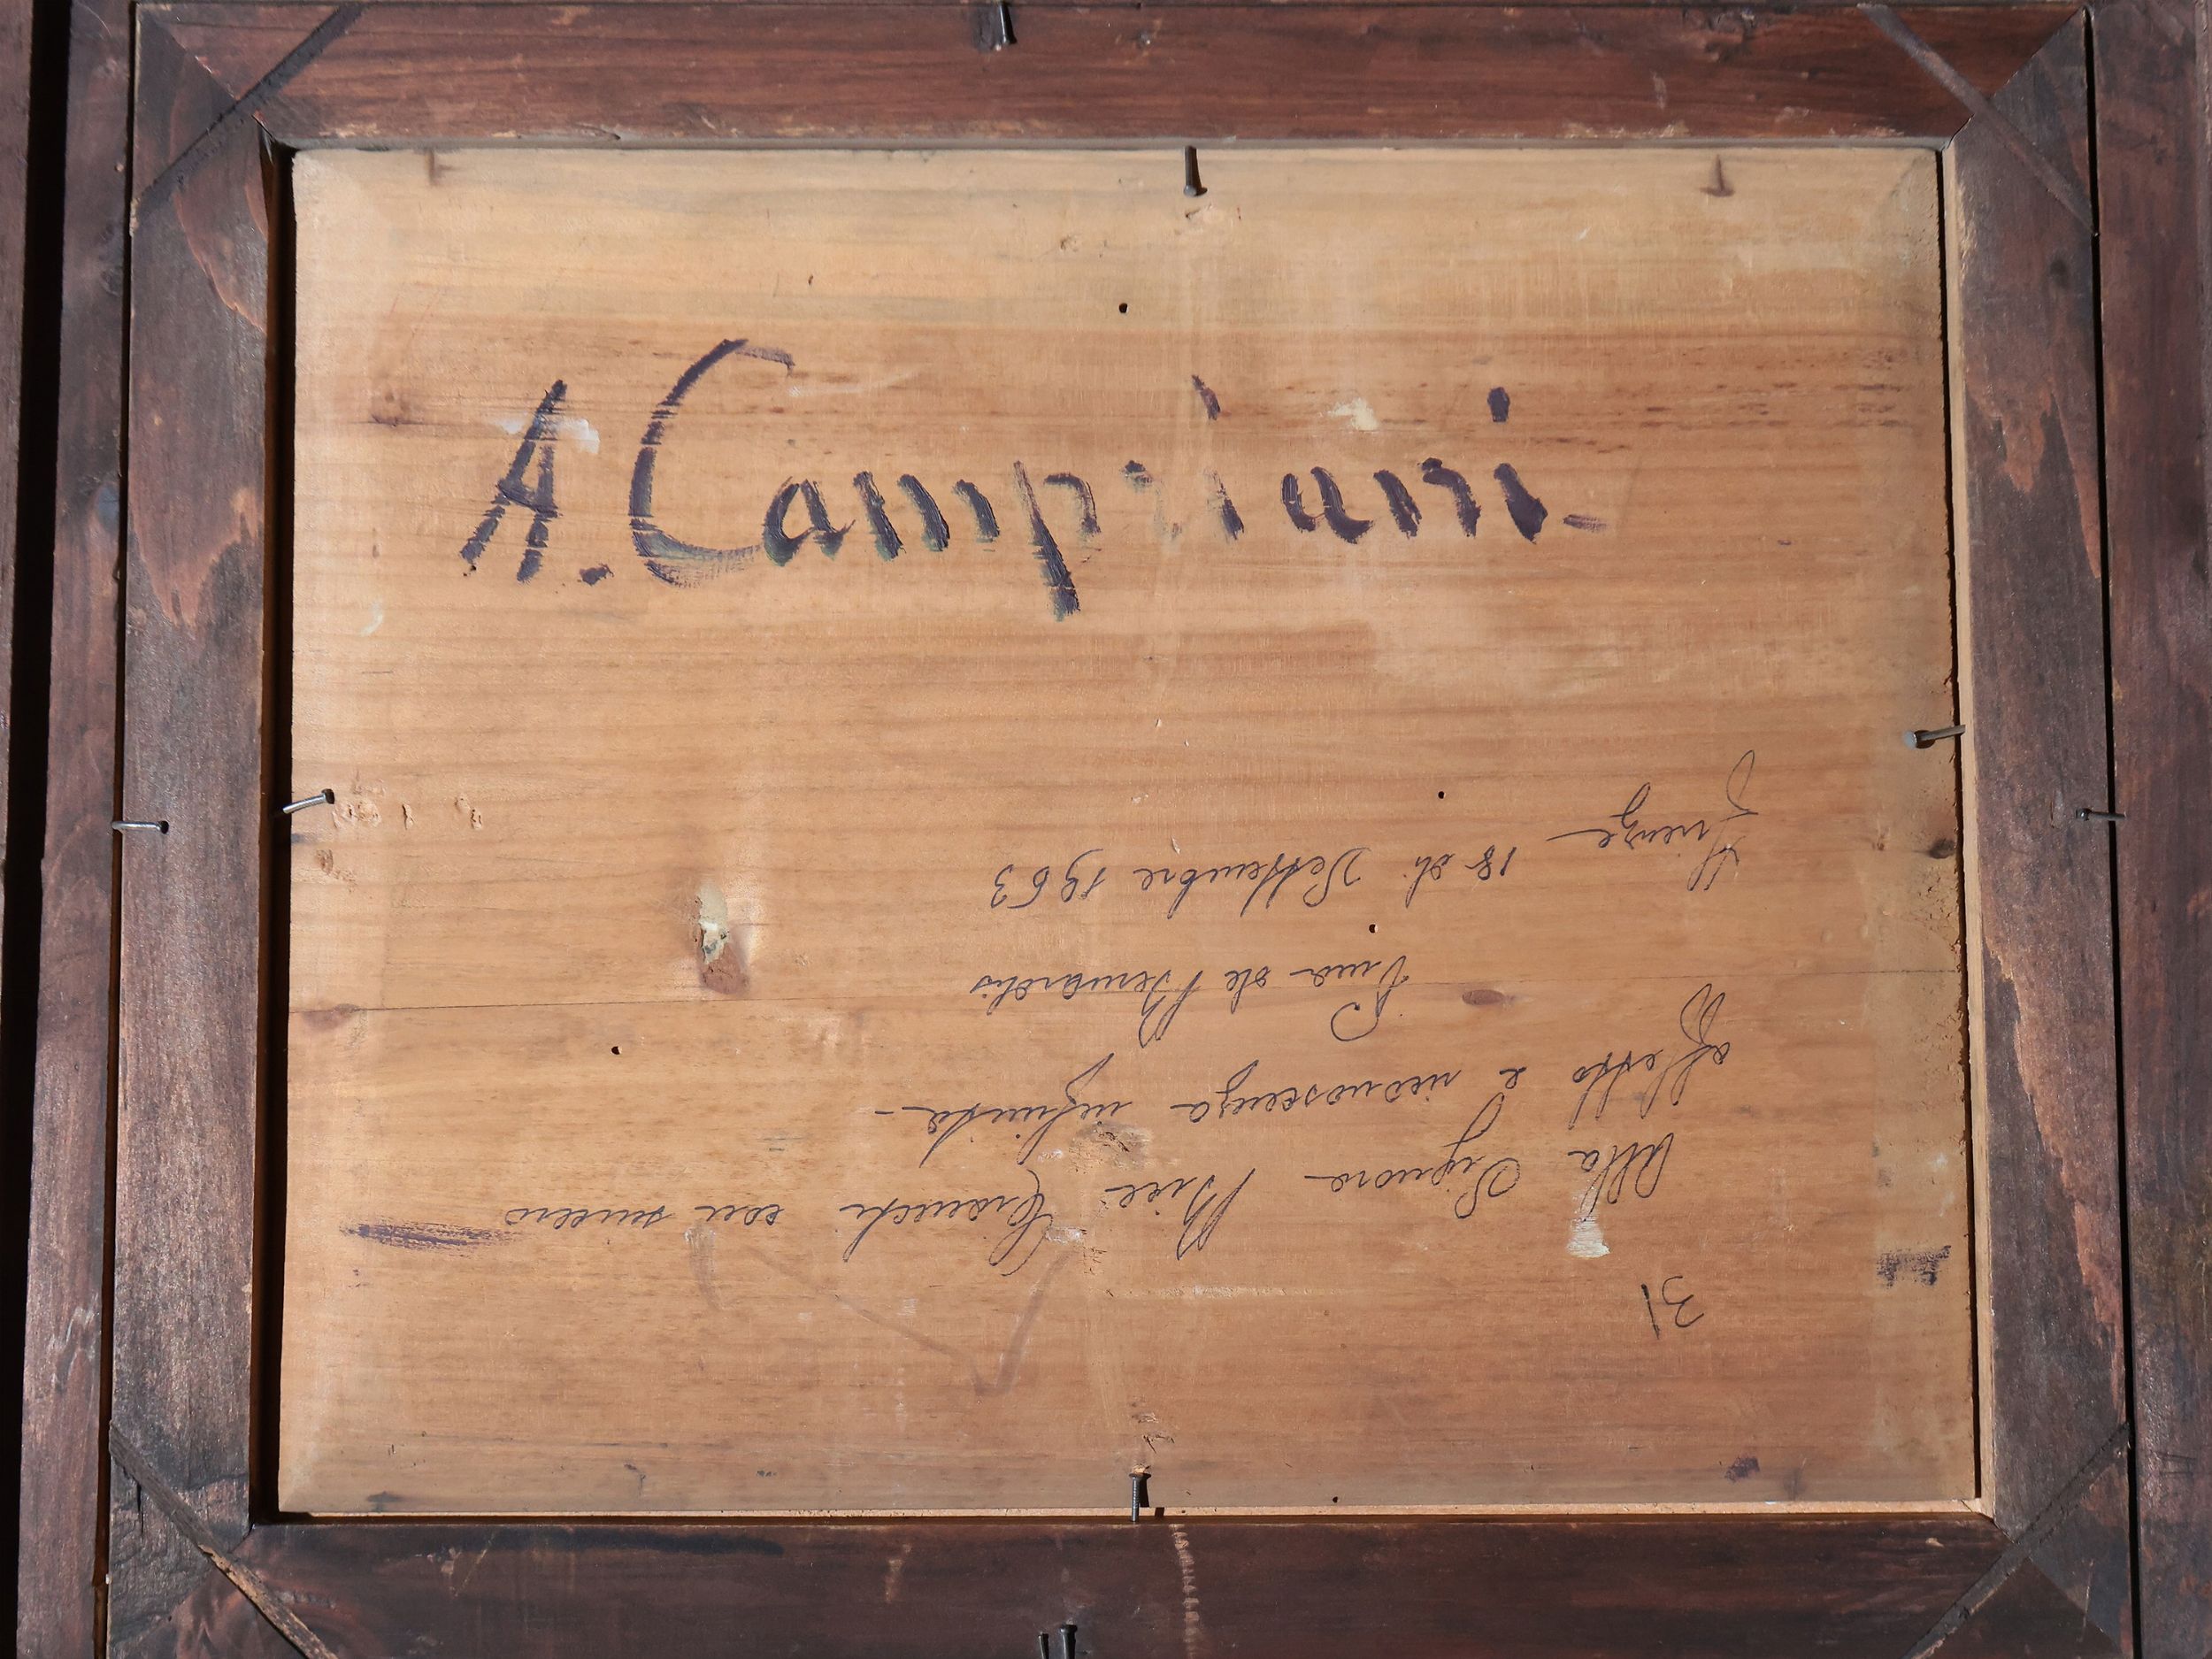 A. Campriani.
31
Alla Signora Bice Cianchi con sincero
affetto e riconoscenza infinita -
Pina de Bernardis
Firenze 18 di Settembre 1963